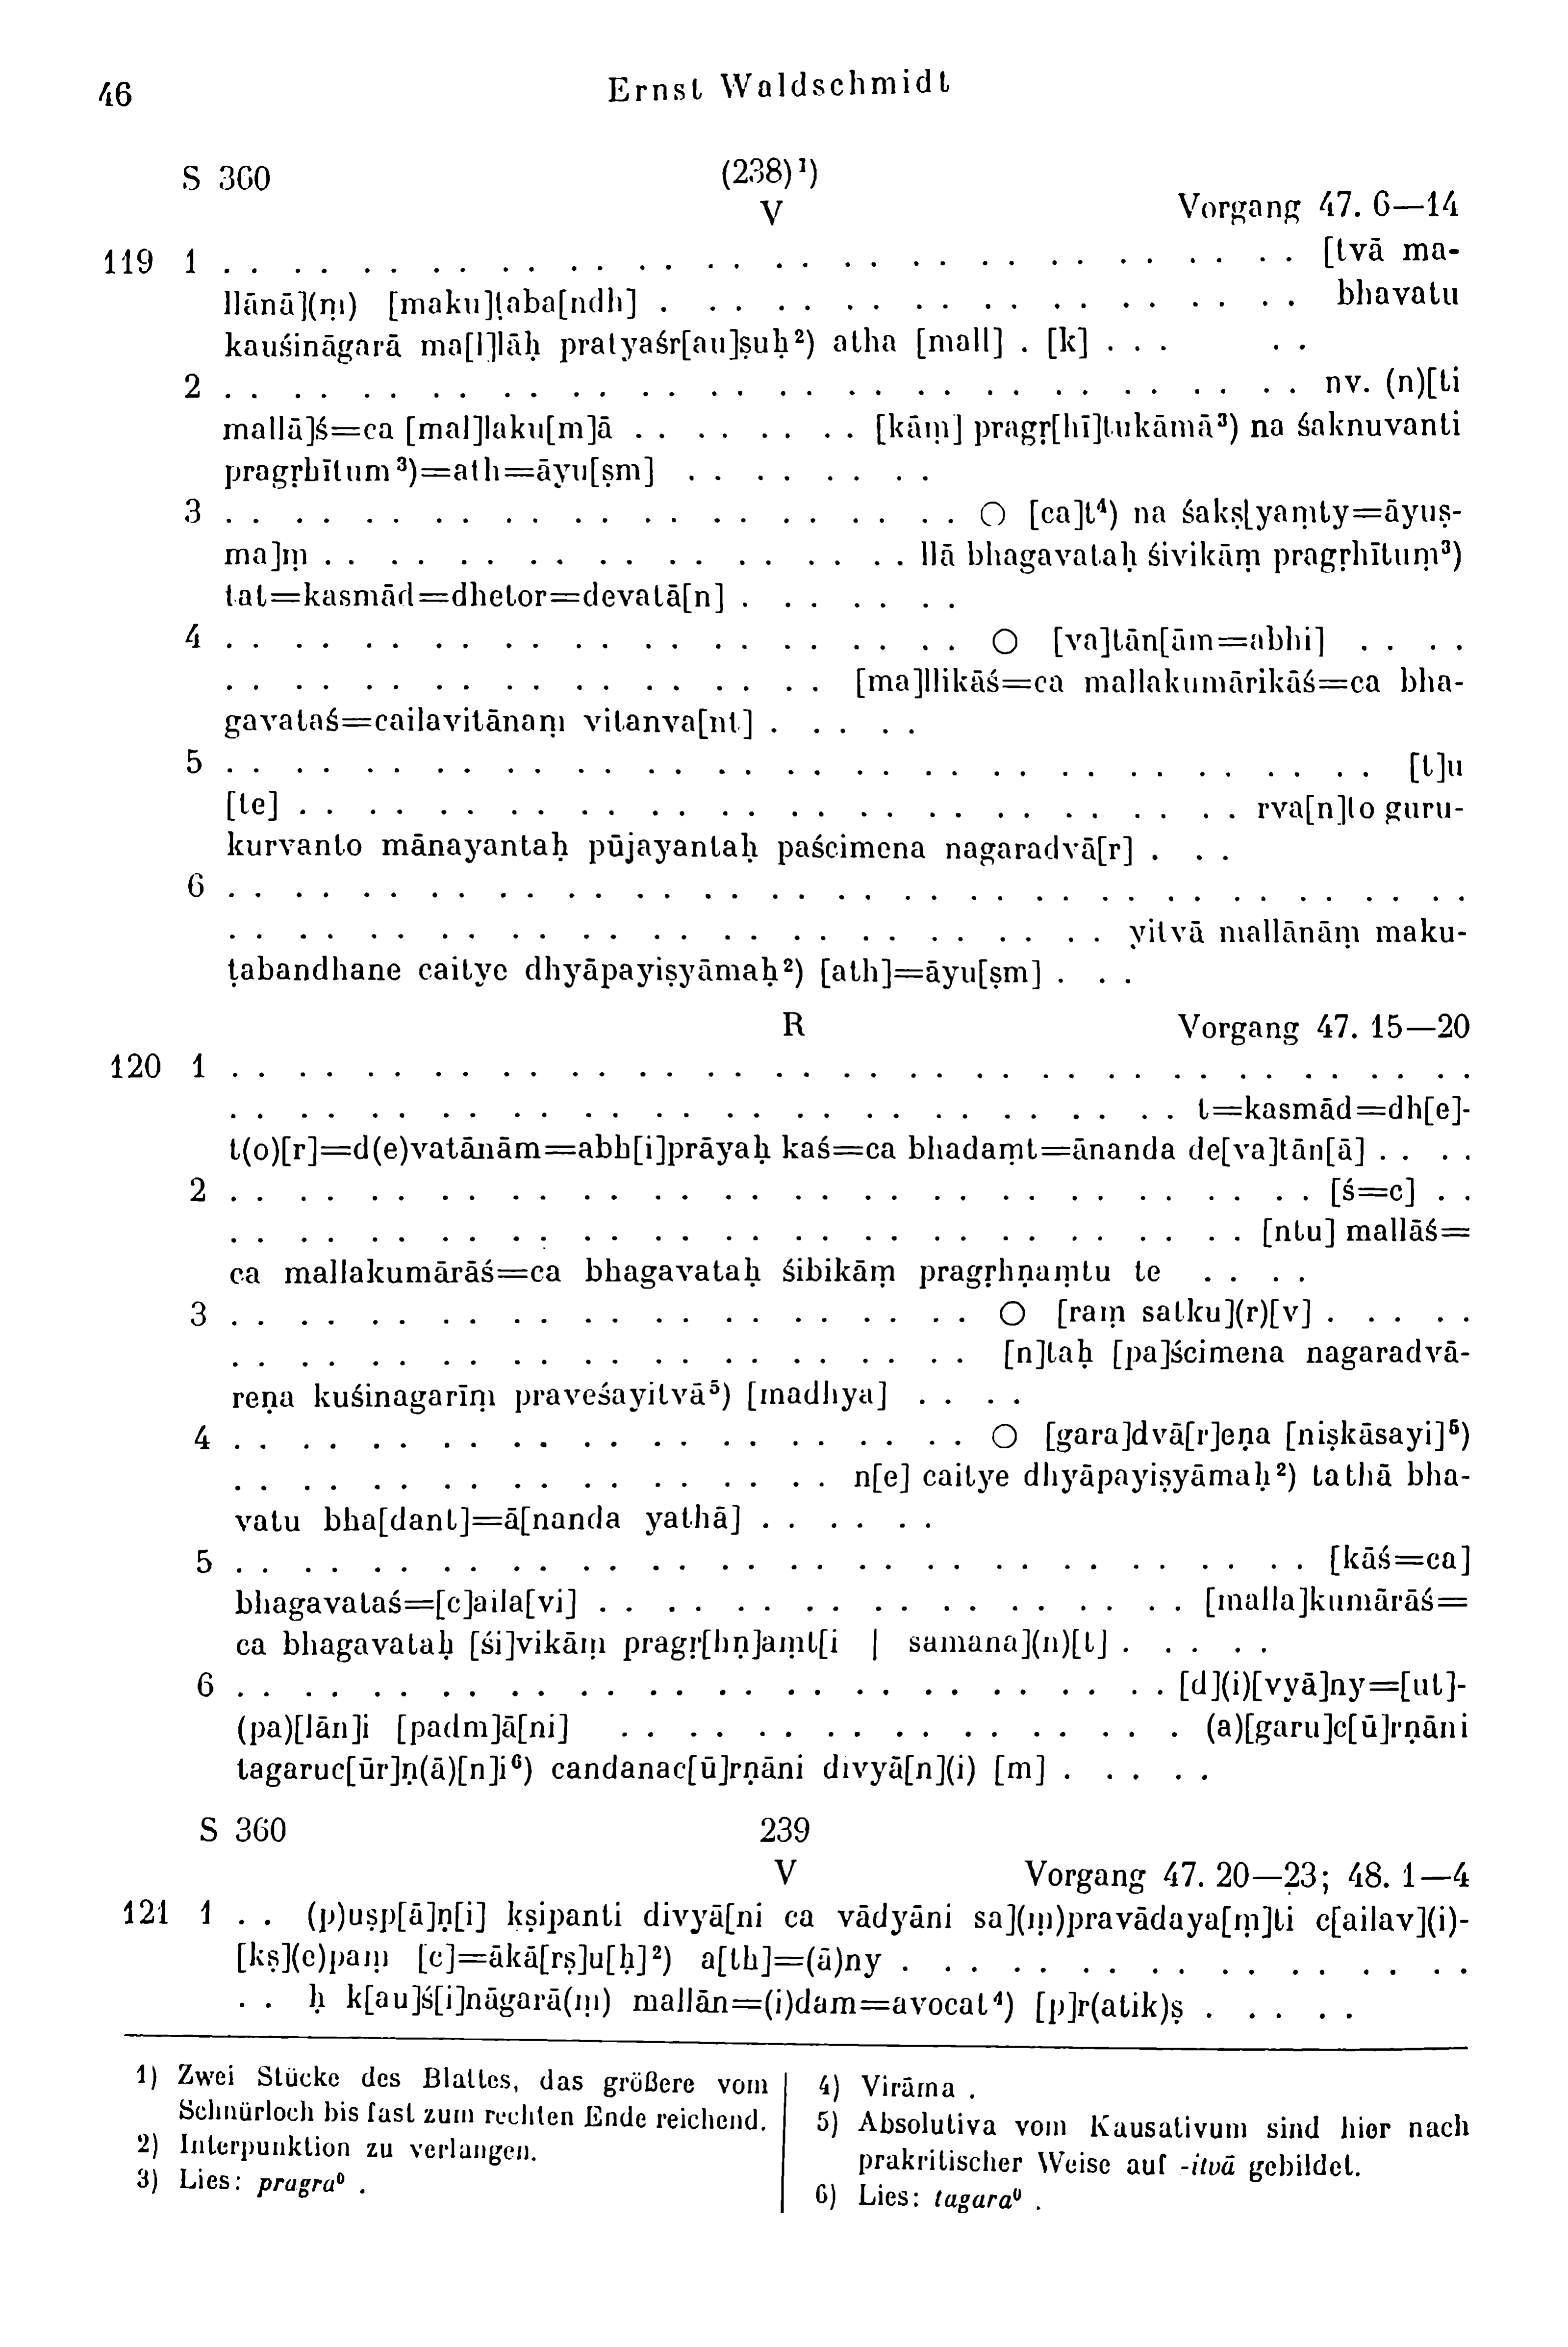 46 Ernst Waldschmidt
S 360 (238)¹)
V Vorgang 47. 6—14
119 1 . . . . . . . . . . . . . . . . . . . . . . . . . . . . . . . . [tvā ma-
llānā](ṃ) [maku]ṭaba[ndh] . . . . . . . . . . . . . . . . . . . bhavatu
kauśināgarā ma[l]lāḥ pratyaśr[au]ṣuḥ²) atha [mall] . [k] . . . . .
2 . . . . . . . . . . . . . . . . . . . . . . . . . . . . . . . . nv. (n)[ti
mallā]ś=ca [mal]laku[m]ā . . . . . . . . [kāṃ] pragṛ[hī]tukāmā³) na śaknuvanti
pragṛhītum³)=ath=āyu[ṣm] . . . . . . . .
3 . . . . . . . . . . . . . . . . . . . . . . ○ [ca]t⁴) na śakṣ[yaṃty=āyuṣ-
ma]ṃ . . . . . . . . . . . . . . . . . . llā bhagavataḥ śivikāṃ pragṛhītuṃ³)
tat=kasmād=dhetor=devatā[n] . . . . . . .
4 . . . . . . . . . . . . . . . . . . . . . . ○ [va]tān[ām=abhi] . . . .
. . . . . . . . . . . . . . . . . . [ma]llikāś=ca mallakumārikāś=ca bha-
gavataś=cailavitānaṃ vitanva[nt] . . . . .
5 . . . . . . . . . . . . . . . . . . . . . . . . . . . . . . . . . . [t]u
[te] . . . . . . . . . . . . . . . . . . . . . . . . . . . . rva[n]to guru-
kurvanto mānayantaḥ pūjayantaḥ paścimena nagaradvā[r] . . .
6 . . . . . . . . . . . . . . . . . . . . . . . . . . . . . . . . . . . . .
. . . . . . . . . . . . . . . . . . . . . . . . . . yitvā mallānāṃ maku-
ṭabandhane caitye dhyāpayiṣyāmaḥ²) [ath]=āyu[ṣm] . . .
R Vorgang 47. 15—20
120 1 . . . . . . . . . . . . . . . . . . . . . . . . . . . . . . . . . . . . .
. . . . . . . . . . . . . . . . . . . . . . . . . . . . t=kasmād=dh[e]-
t(o)[r]=d(e)vatānām=abh[i]prāyaḥ kaś=ca bhadaṃt=ānanda de[va]tān[ā] . . . .
2 . . . . . . . . . . . . . . . . . . . . . . . . . . . . . . . . [ś=c] . .
. . . . . . . . . . . . . . . . . . . . . . . . . . . . . . [ntu] mallāś=
ca mallakumārāś=ca bhagavataḥ śibikāṃ pragṛhṇaṃtu te . . . .
3 . . . . . . . . . . . . . . . . . . . . . . ○ [raṃ satku](r)[v] . . . . .
. . . . . . . . . . . . . . . . . . . . . . [n]taḥ [pa]ścimena nagaradvā-
reṇa kuśinagarīṃ praveśayitvā⁵) [madhya] . . . .
4 . . . . . . . . . . . . . . . . . . . . . . ○ [gara]dvā[r]eṇa [niṣkāsayi]⁵)
. . . . . . . . . . . . . . . . . . n[e] caitye dhyāpayiṣyāmaḥ²) tathā bha-
vatu bha[dant]=ā[nanda yathā] . . . . . .
5 . . . . . . . . . . . . . . . . . . . . . . . . . . . . . . . . [kāś=ca]
bhagavataś=[c]aila[vi] . . . . . . . . . . . . . . . . . . [malla]kumārāś=
ca bhagavataḥ [śi]vikāṃ pragṛ[hṇ]aṃt[i | samana](n)[t] . . . . .
6 . . . . . . . . . . . . . . . . . . . . . . . . . . . . [d](i)[vyā]ny=[ut]-
(pa)[lān]i [padm]ā[ni] . . . . . . . . . . . . . . . . . (a)[garu]c[ū]rṇāni
tagaruc[ūr]ṇ(ā)[n]i⁶) candanac[ū]rṇāni divyā[n](i) [m] . . . . .
S 360 239
V Vorgang 47. 20—23; 48. 1—4
121 1 . . (p)uṣp[ā]ṇ[i] kṣipanti divyā[ni ca vādyāni sa](ṃ)pravādaya[ṃ]ti c[ailav](i)-
[kṣ](e)paṃ [c]=ākā[rṣ]u[ḥ]²) a[th]=(ā)ny . . . . . . . . . . . . . . . . .
. . ḥ k[au]ś[i]nāgarā(ṃ) mallān=(i)dam=avocat⁴) [p]r(atik)ṣ . . . . .
1) Zwei Stücke des Blattes, das größere vom
Schnürloch bis fast zum rechten Ende reichend.
2) Interpunktion zu verlangen.
3) Lies: pragra⁰ .
4) Virāma .
5) Absolutiva vom Kausativum sind hier nach
prakritischer Weise auf -itvā gebildet.
6) Lies: tagara⁰ .